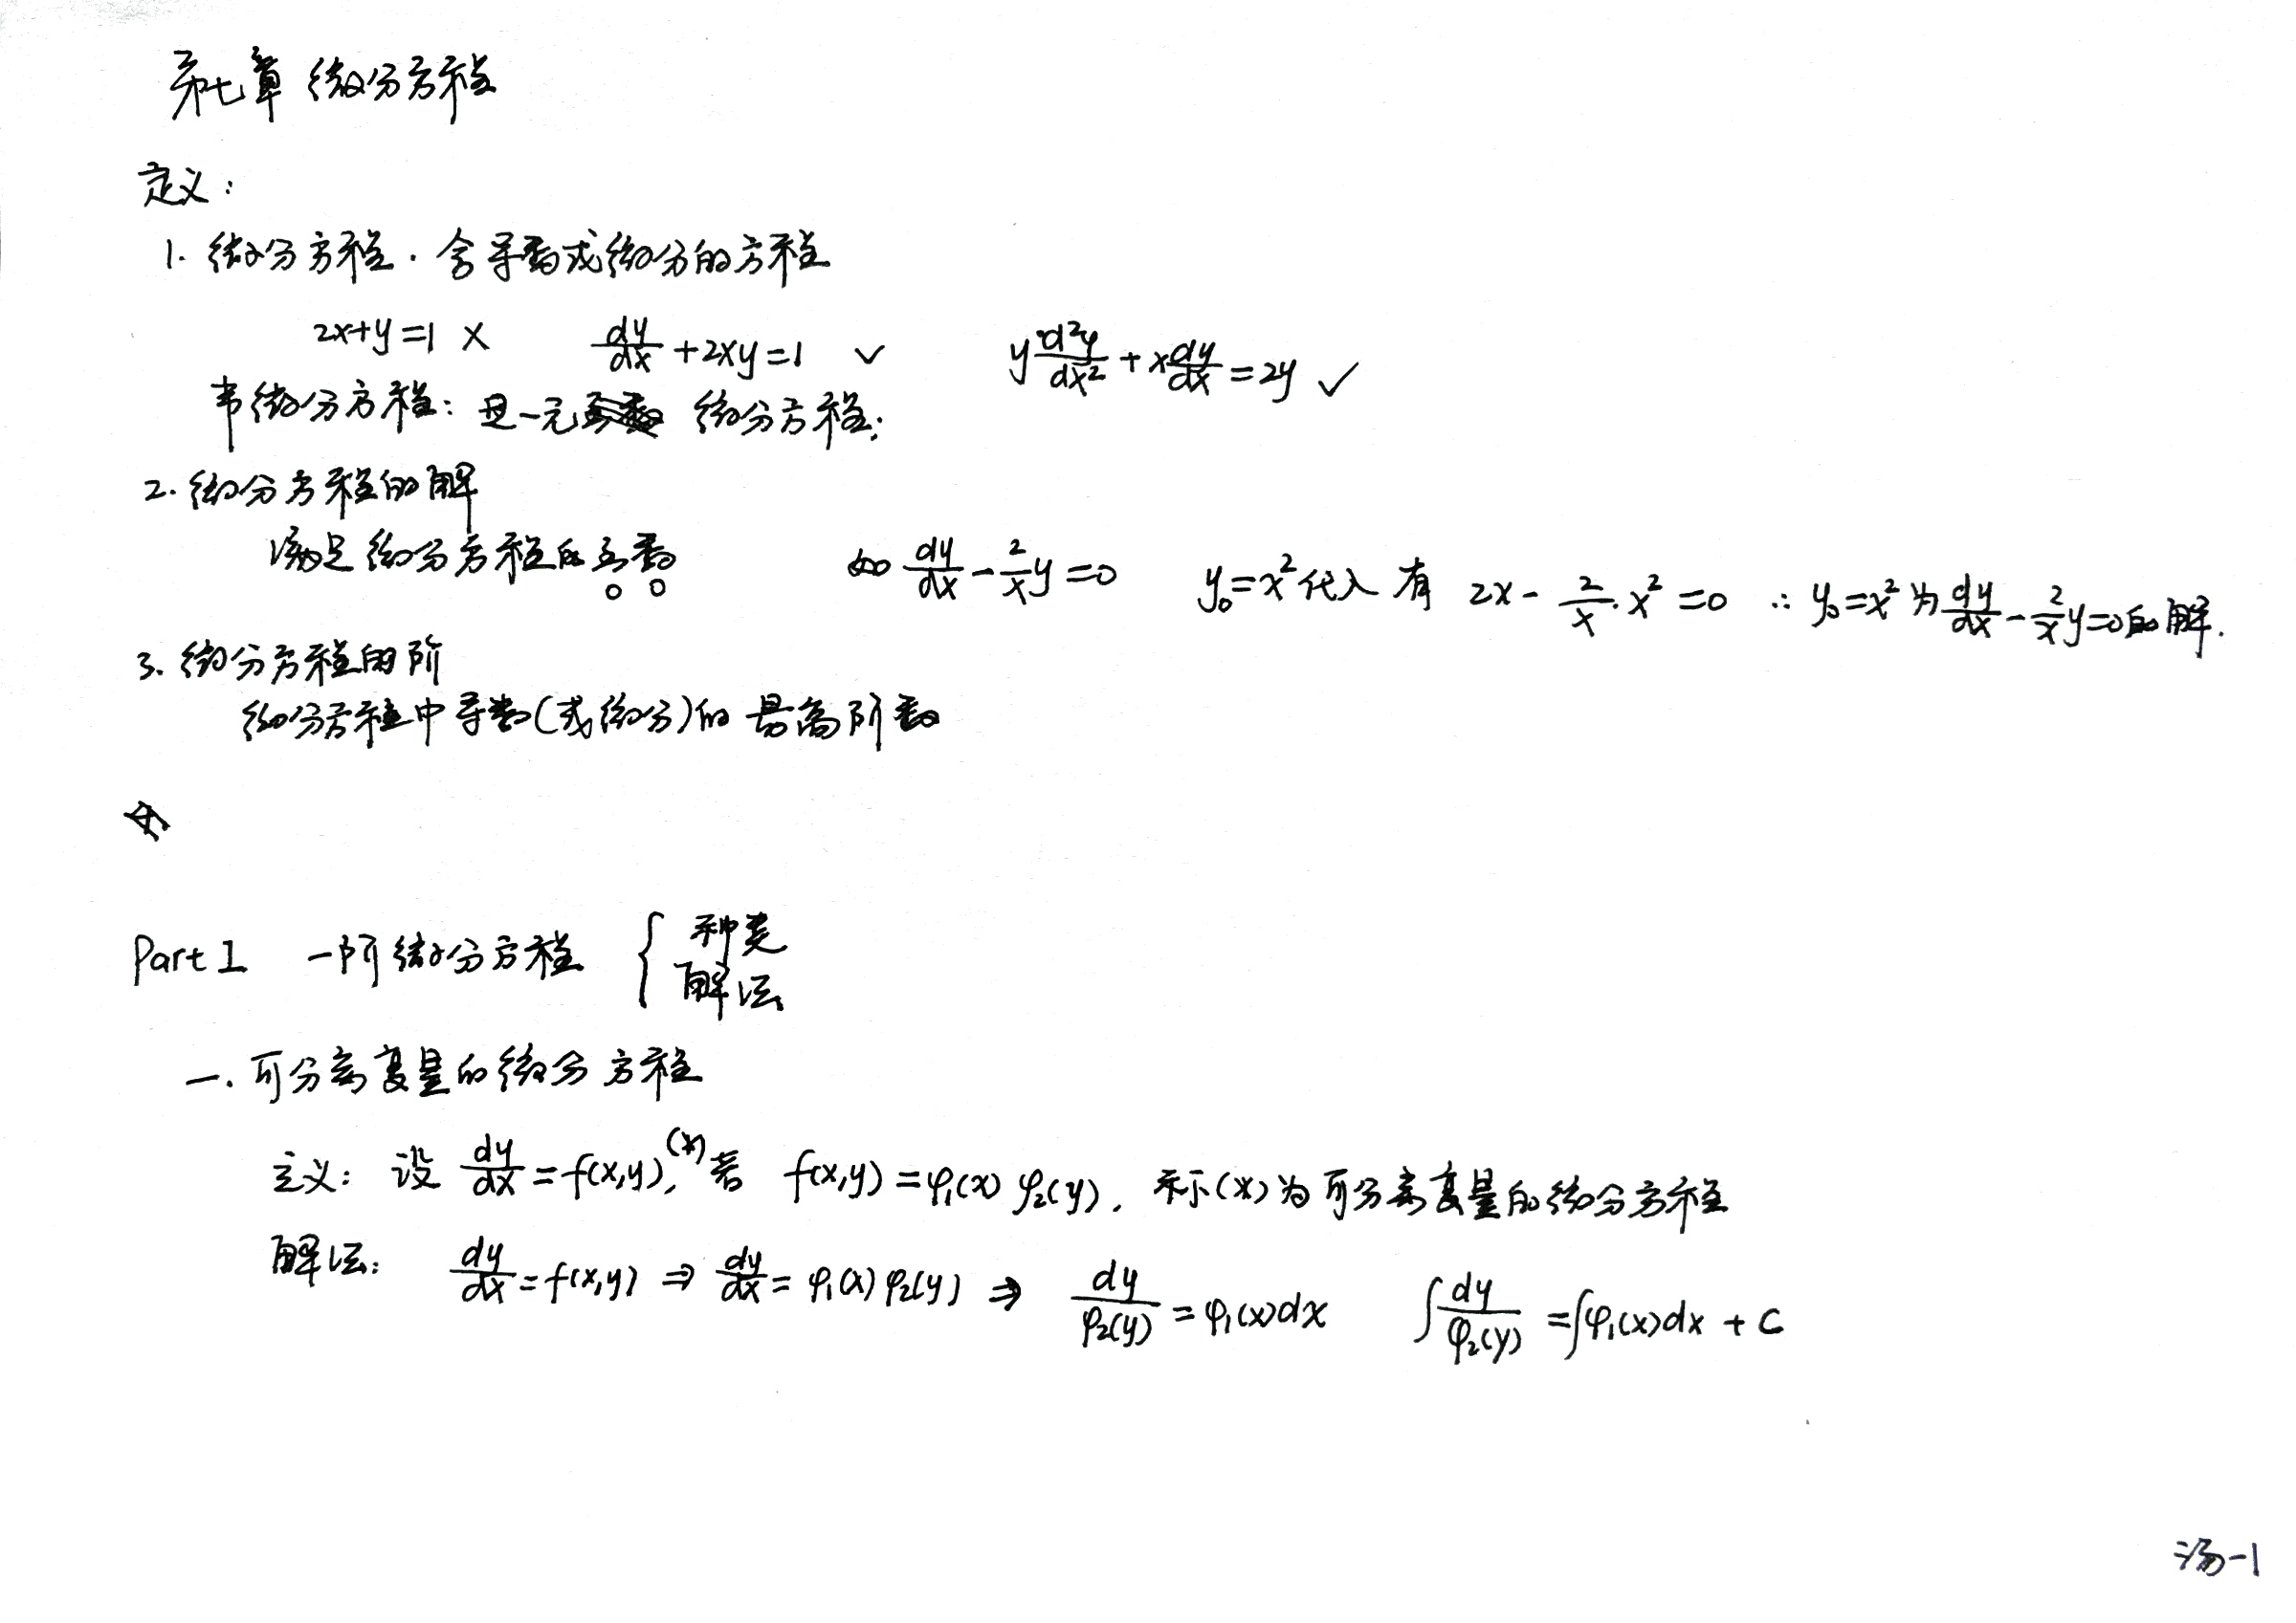 第七章 微分方程
定义:
1. 微分方程. 含导数或微分的方程
2x+y=1 × dy/dx+2xy=1 ✓ y d²y/dx²+x dy/dx=2y ✓
常微分方程: 是一元 微分方程;
2. 微分方程的解
满足微分方程的函数 如 dy/dx-2/x y=0 y₀=x²代入 有 2x-2/x·x²=0 ∴ y₀=x²为 dy/dx-2/x y=0的解.
3. 微分方程的阶
微分方程中导数(或微分)的最高阶数
Part 1 一阶微分方程 { 种类
解法
一. 可分离变量的微分方程
定义: 设 dy/dx=f(x,y), (*) 若 f(x,y)=φ₁(x)φ₂(y), 称(*)为可分离变量的微分方程
解法: dy/dx=f(x,y) ⇒ dy/dx=φ₁(x)φ₂(y) ⇒ dy/φ₂(y)=φ₁(x)dx ∫dy/φ₂(y)=∫φ₁(x)dx+C
汤-1